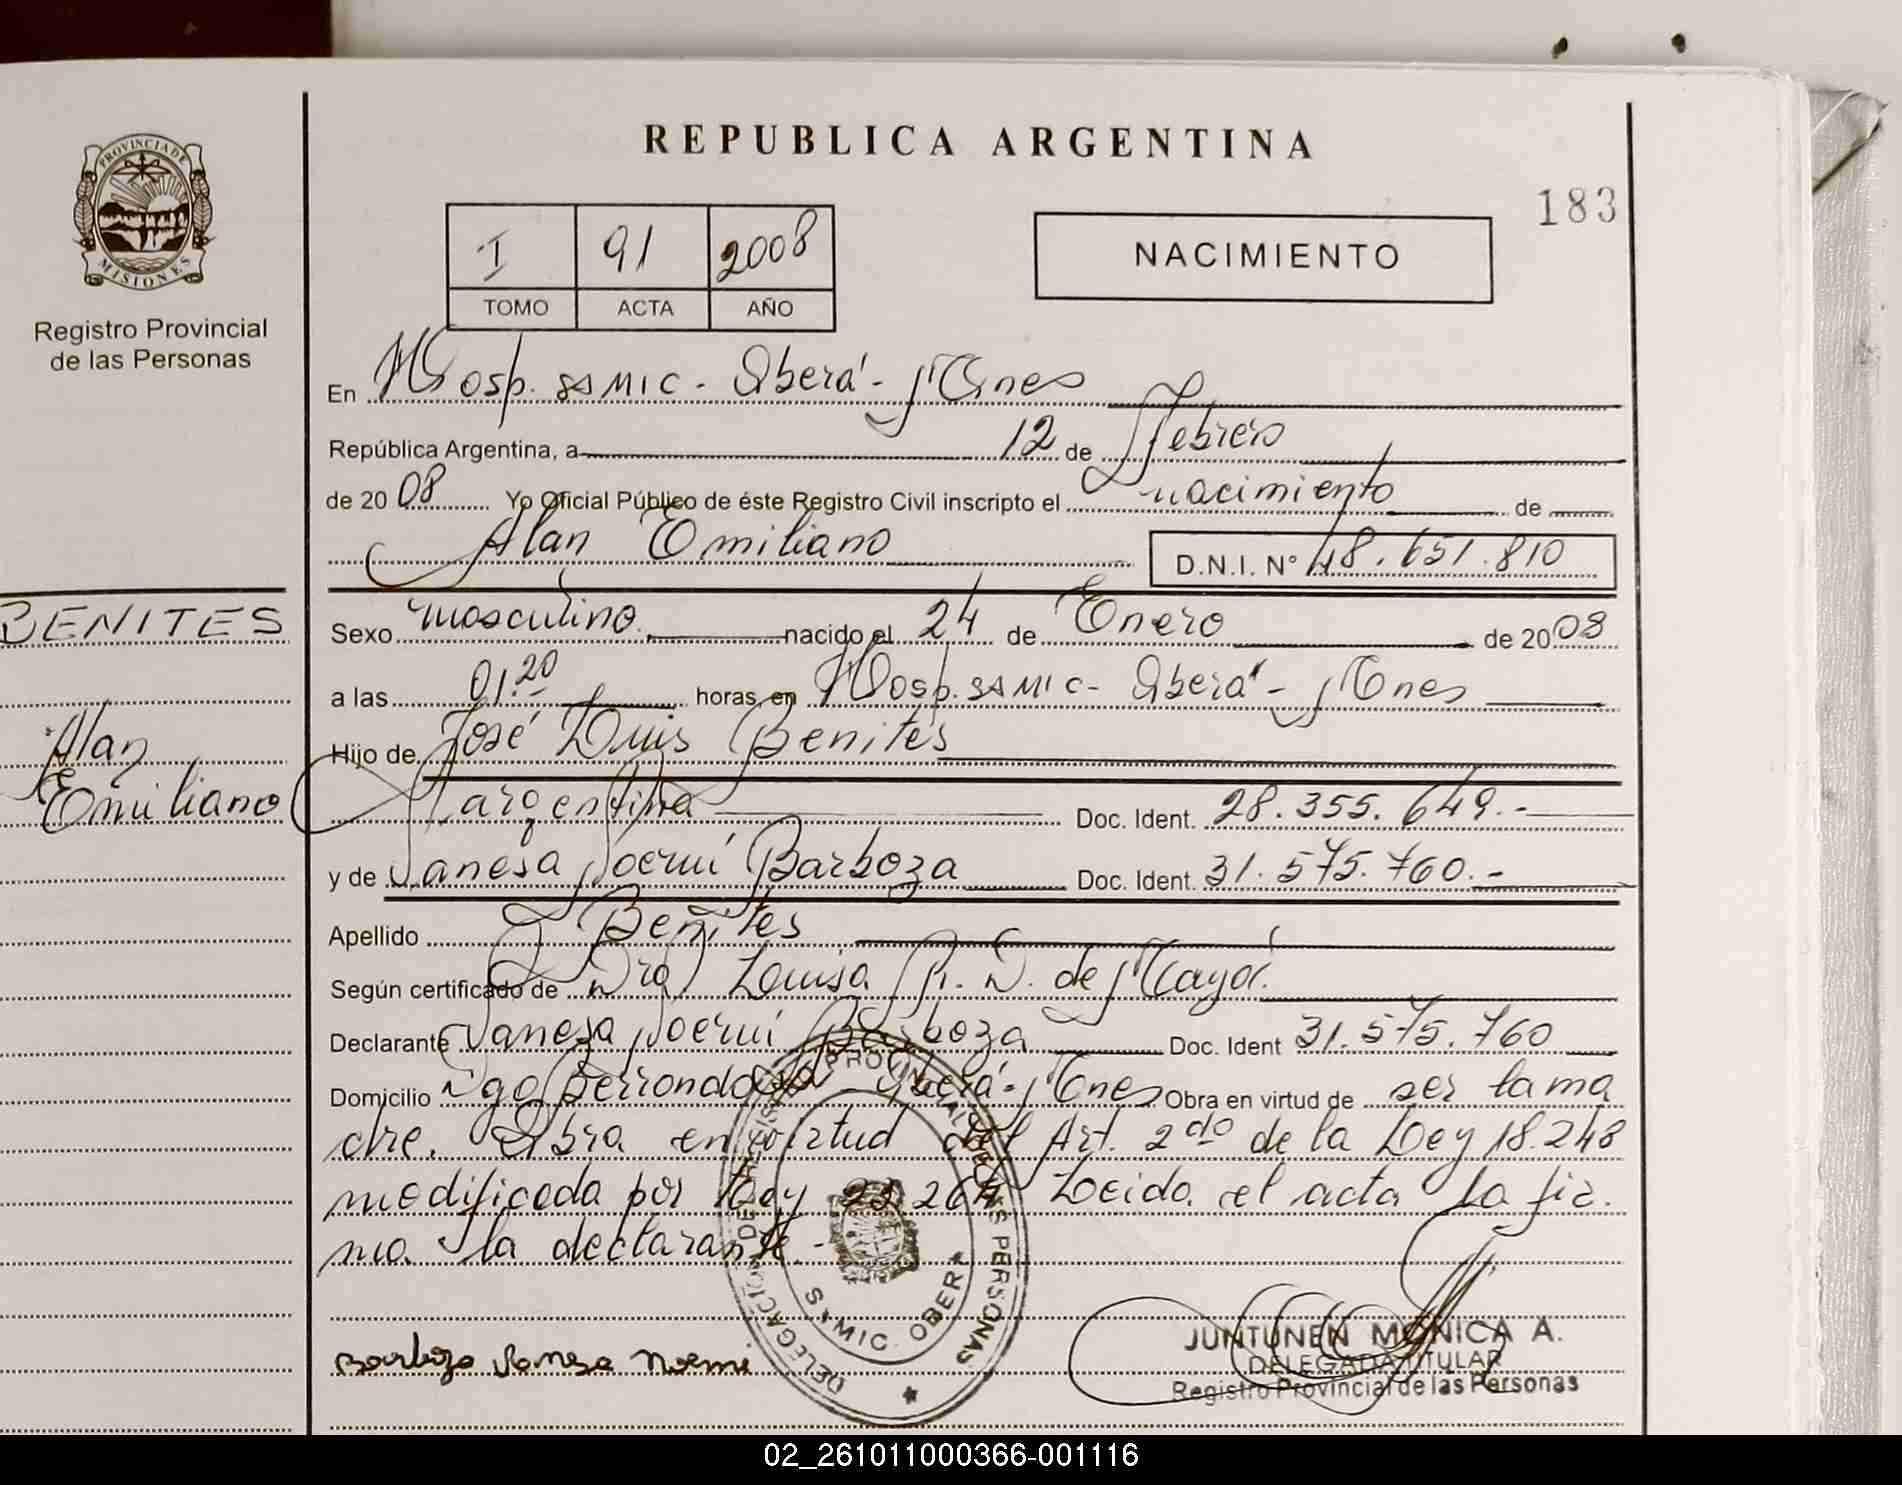 REPUBLICA ARGENTINA
183
PROVINCIA DE
MISIONES
Registro Provincial
de las Personas
I 91 2008
TOMO ACTA AÑO
NACIMIENTO
En Hosp. SAMIC - Oberá - Mnes
República Argentina, a 12 de Febrero
de 2008 Yo Oficial Público de éste Registro Civil inscripto el nacimiento de
Alan Emiliano D.N.I. N° 48.651.810
BENITES
Alan
Emiliano
Sexo masculino nacido el 24 de Enero de 2008
a las 01.20 horas, en Hosp. SAMIC - Oberá - Mnes
Hijo de José Luis Benites
argentina Doc. Ident. 28.355.649.-
y de Vanesa Noemí Barboza Doc. Ident. 31.575.760.-
Apellido Benites
Según certificado de Dra Luisa R. D. de Mayol.
Declarante Vanesa Noemí Barboza Doc. Ident 31.575.760
Domicilio Bgo Berrondo Oberá - Mnes Obra en virtud de ser la ma
dre. Obra en virtud del Art. 2do de la Ley 18.248
modificada por Ley 23.264 Leida el acta la fir.
ma la declarante.-
DELEGACION DE REGISTRO PROVINCIAL DE LAS PERSONAS
SAMIC. OBERA
Barboza Vanesa Noemi
JUNTUNEN MONICA A.
DELEGADA TITULAR
Registro Provincial de las Personas
02_261011000366-001116